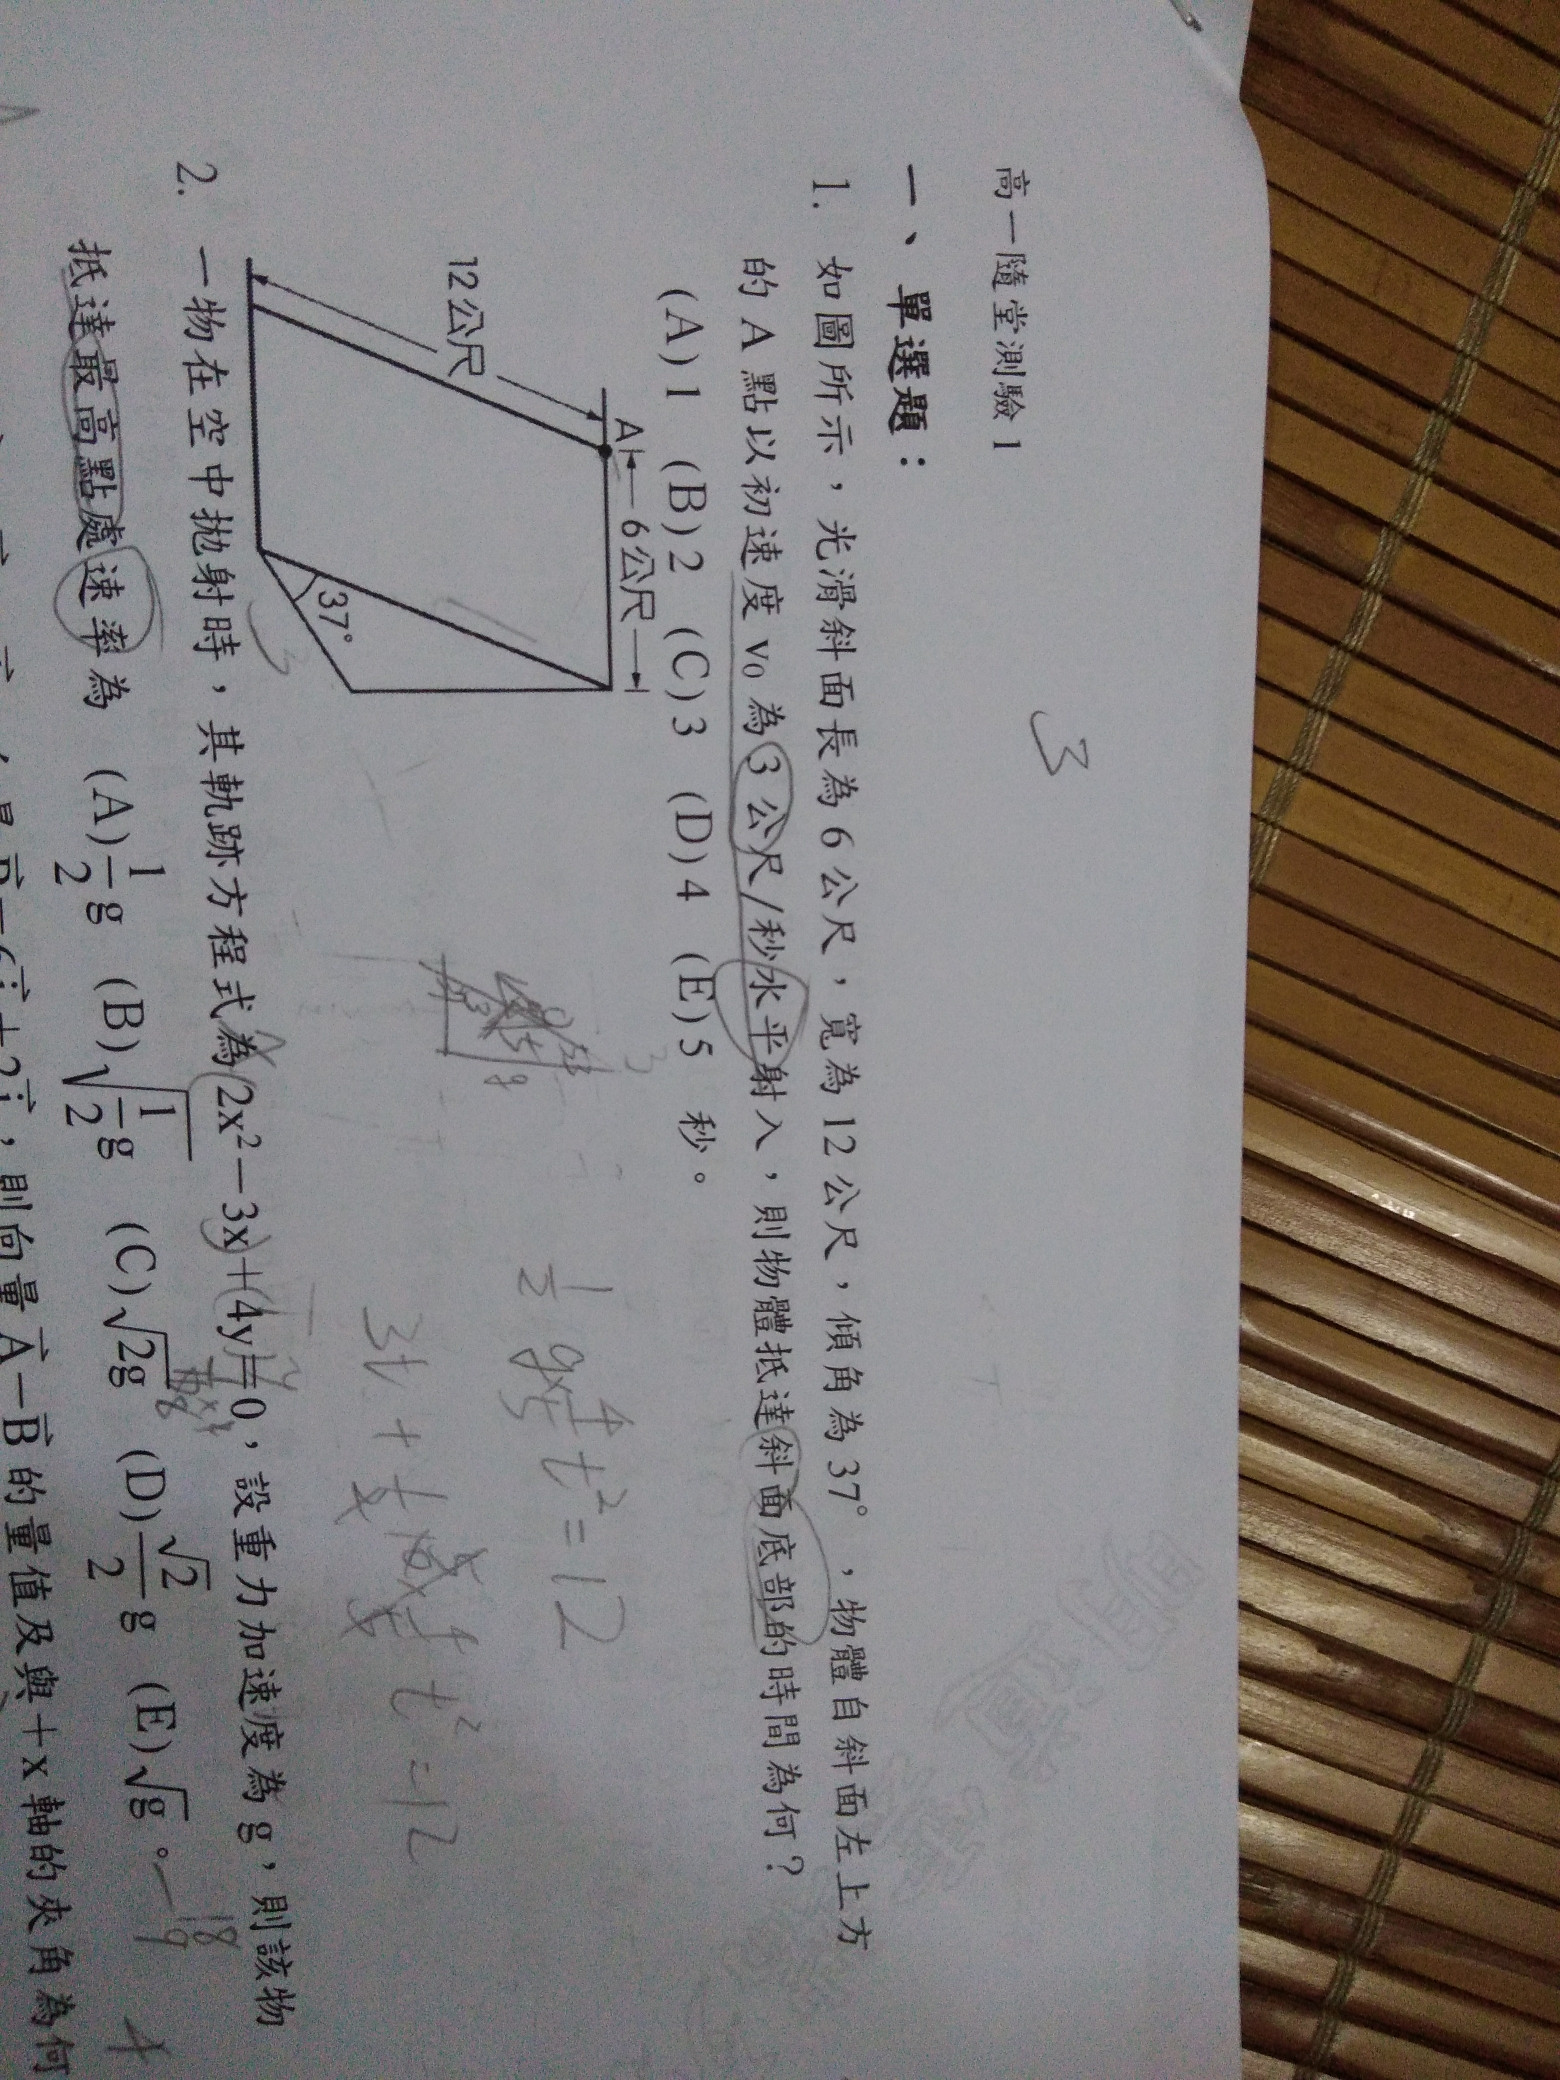 高一隨堂測驗1
3
一、單選題：
1. 如圖所示，光滑斜面長為6公尺，寬為12公尺，傾角為37°，物體自斜面左上方
的A點以初速度v₀為3公尺/秒水平射入，則物體抵達斜面底部的時間為何？
(A)1 (B)2 (C)3 (D)4 (E)5 秒。
A 6公尺
12公尺
37°
3t +
t² = 12
2. 一物在空中拋射時，其軌跡方程式為2x²－3x＋4y＝0，設重力加速度為g，則該物
抵達最高點處速率為 (A)1/2 g (B)√(1/2 g) (C)√2g (D)√2/2 g (E)√g。
18
9
則向量A⃗－B⃗的量值及與＋x軸的夾角為何